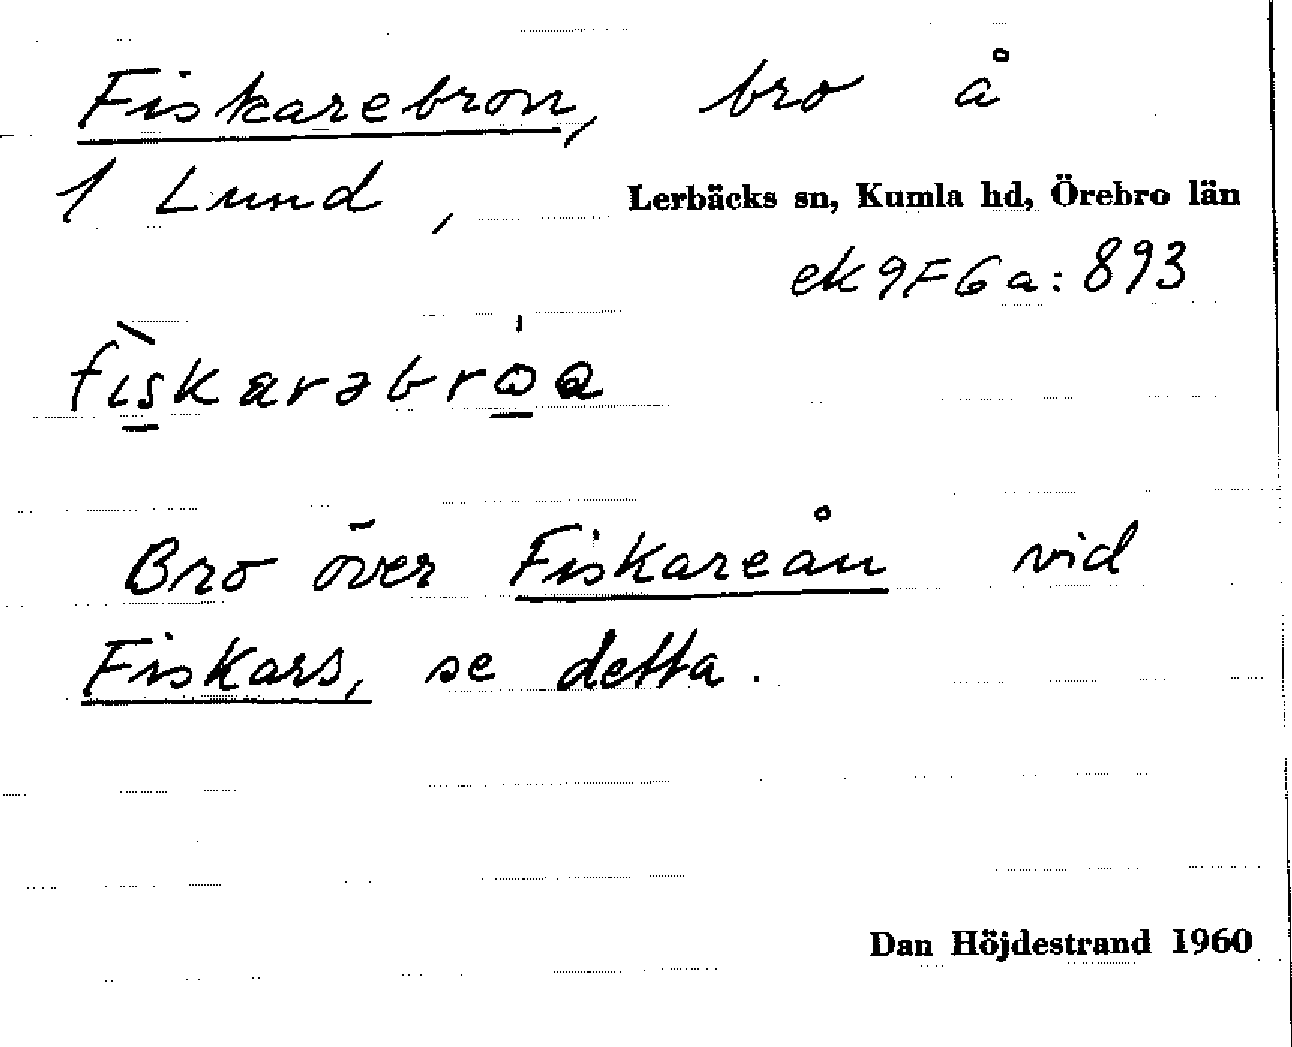 Fiskarebron, bro å
1 Lund, Lerbäcks sn, Kumla hd, Örebro län
ek 9F6a: 893
fìskarəbróa
Bro över Fiskareån vid
Fiskars, se detta.
Dan Höjdestrand 1960